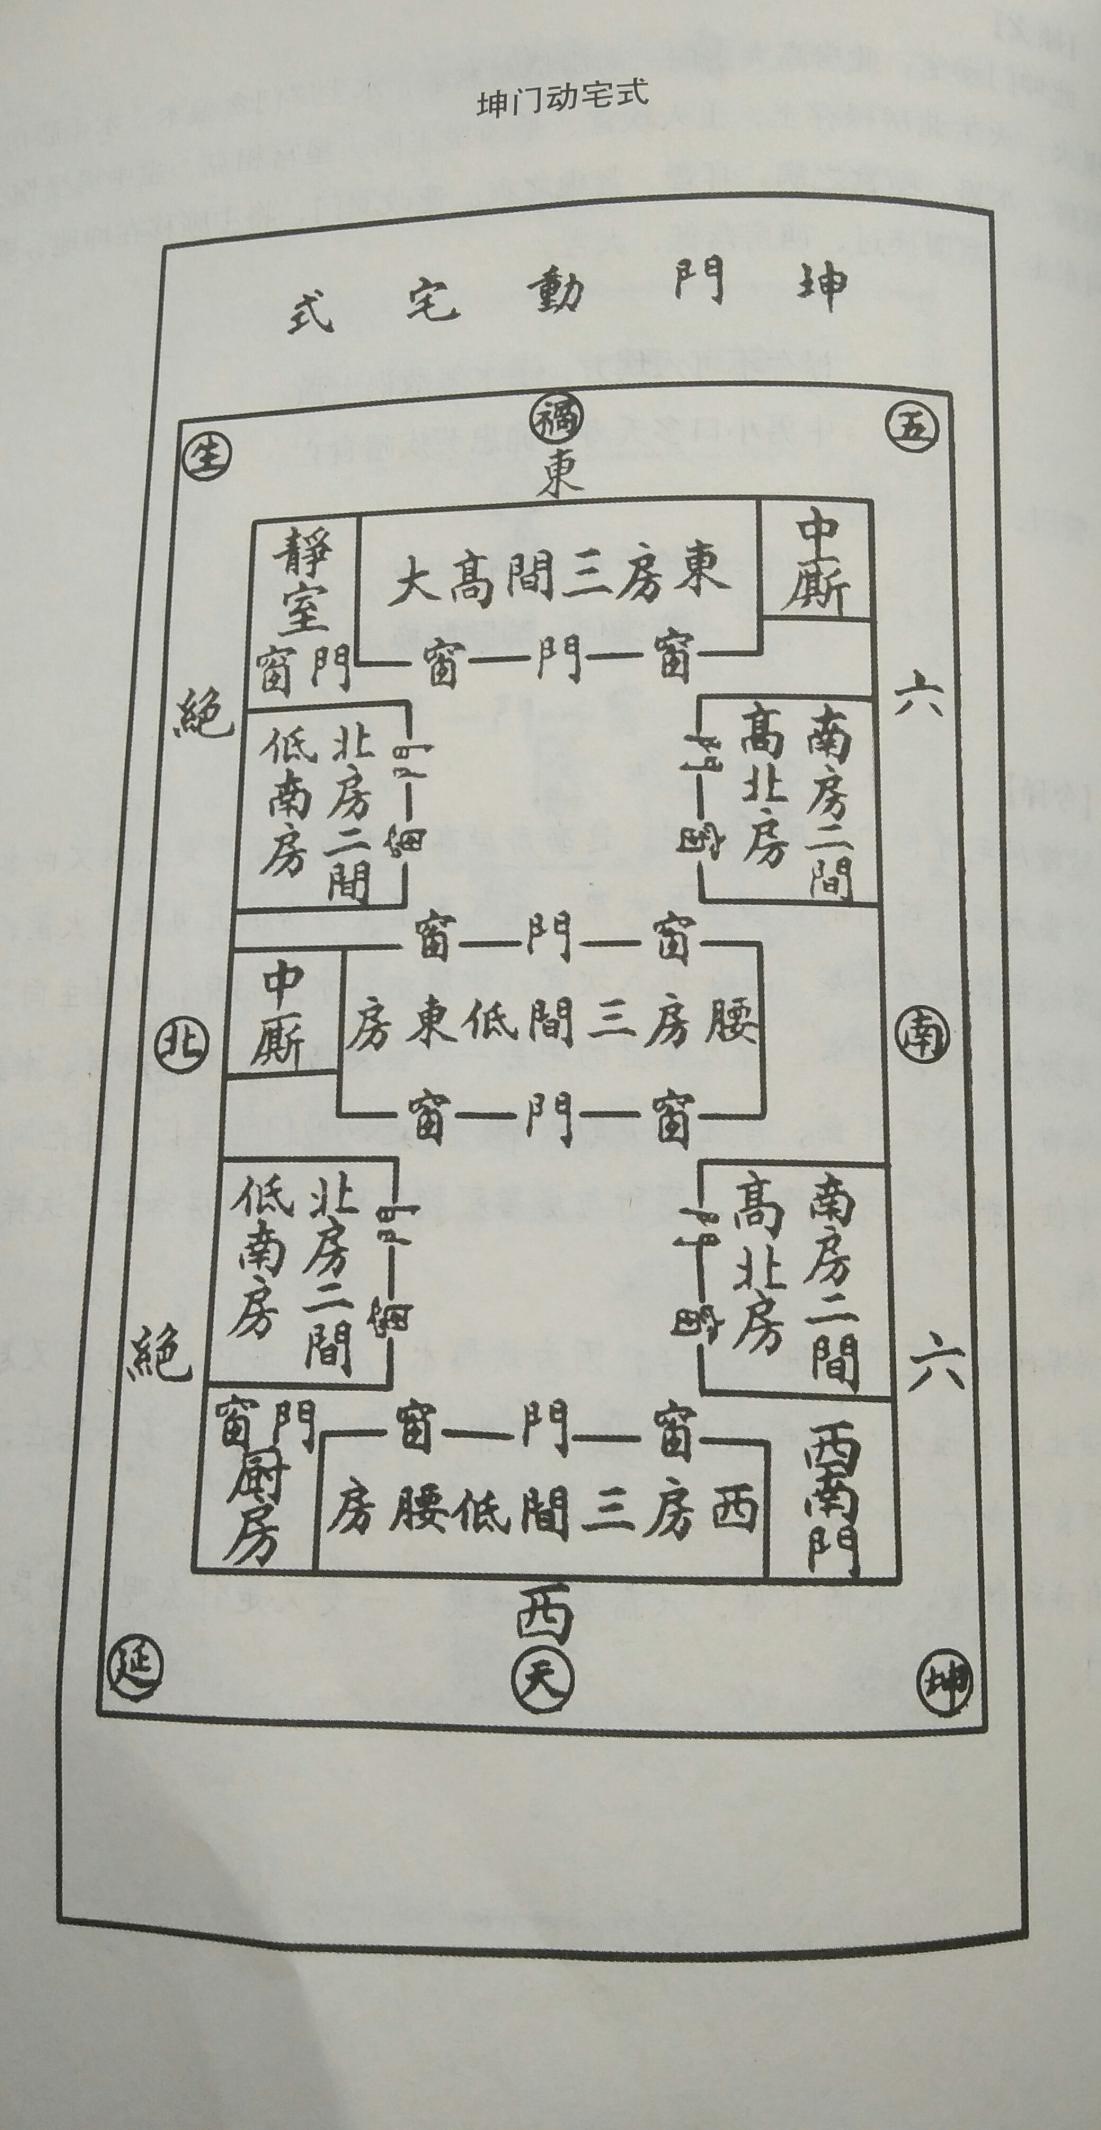 坤门动宅式
坤門動宅式
生
禍
五
東
靜室
門窗
東房三間高大
中厮
窗門窗
絕
六
北房二間
低南房
門
窗
南房二間
高北房
門
窗
窗門窗
中厮
腰房三間低東房
北
南
窗門窗
北房二間
低南房
門
窗
南房二間
高北房
門
窗
絕
六
門窗
厨房
窗門窗
西房三間低腰房
西南門
西
延
天
坤